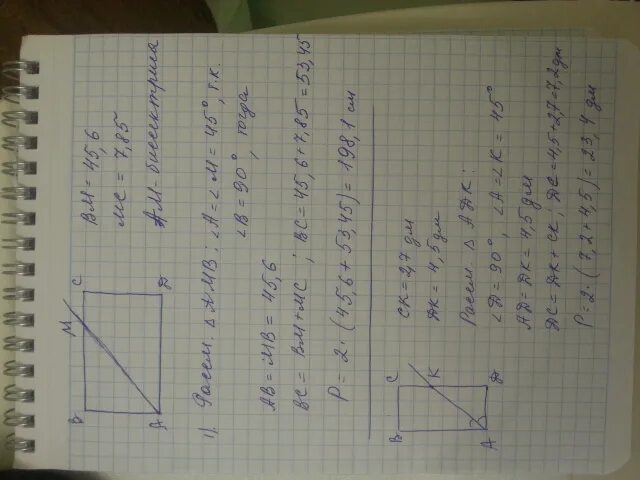 B
M
C
A
Д
BM = 45,6
MC = 7,85
AM - биссектриса
1) Рассм. ΔAMB: ∠A=∠M=45°, т.к.
∠B=90°, тогда
AB=MB=45,6
BC=BM+MC; BC=45,6+7,85=53,45
P=2·(45,6+53,45)=198,1 см
B
C
K
A
Д
CK=2,7 дм
ДK=4,5 дм
Рассм. Δ АДК:
∠Д=90°, ∠A=∠K=45°
АД=ДК=4,5 дм
ДС=ДК+СК; ДС=4,5+2,7=7,2 дм
P=2·(7,2+4,5)=23,4 дм